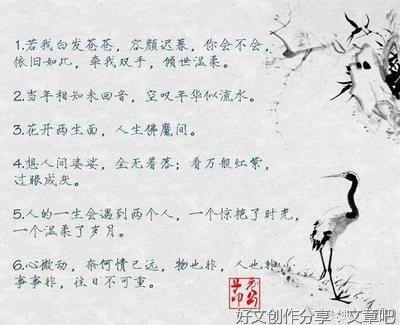 1.若我白发苍苍，容颜迟暮，你会不会，
依旧如此，牵我双手，倾世温柔。
2.当年相知未回音，空叹年华似流水。
3.花开两生面，人生佛魔间。
4.想人间婆娑，全无着落；看万般红紫，
过眼成灰。
5.人的一生会遇到两个人，一个惊艳了时光，
一个温柔了岁月。
6.心微动，奈何情已远，物也非，人也非
事事非，往日不可重。
好文创作分享 文章吧